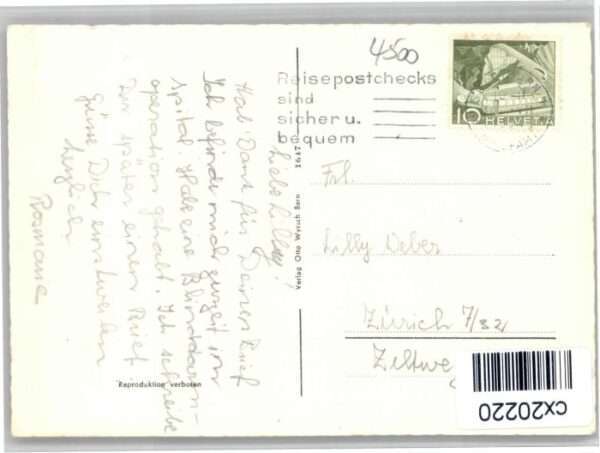 4500
Reisepostchecks
sind
sicher u.
bequem
10 HELVETIA
Liebe Lilly!
Hab Dank für Deinen Brief
Ich befinde mich zurzeit im
Spital. Habe eine Blinddarm-
operation gehabt. Ich schreibe
Dir später einen Brief.
Grüsse Dich einstweilen
herzlich
Rosmarie
Verlag Otto Wyrsch Bern
1617
Frl.
Lilly Weber
Zürich 7/32
Zeltwe
Reproduktion verboten
CX20220